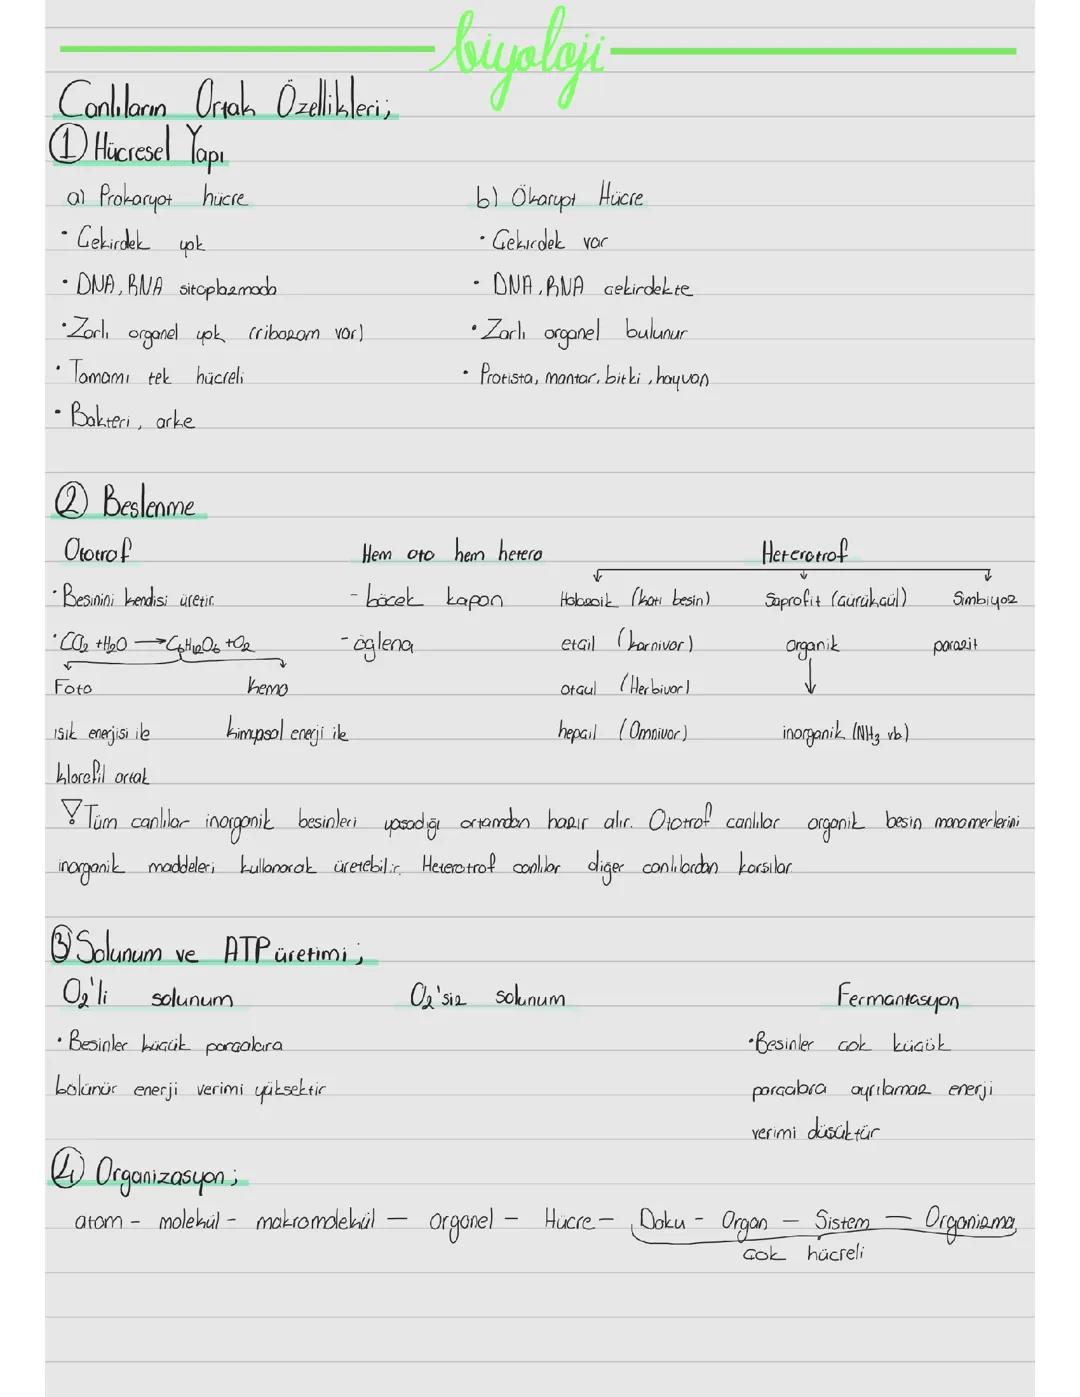 biyoloji
Canlıların Ortak Özellikleri;
① Hücresel Yapı
a) Prokaryot hücre
• Çekirdek yok
• DNA, RNA sitoplazmada
• Zarlı organel yok (ribozom var)
• Tamamı tek hücreli
• Bakteri, arke
b) Ökaryot Hücre
• Çekirdek var
• DNA, RNA çekirdekte
• Zarlı organel bulunur
• Protista, mantar, bitki, hayvan
② Beslenme
Ototrof
• Besinini kendisi üretir.
• CO2 + H2O → C6H12O6 + O2
Foto Kemo
ışık enerjisi ile kimyasal enerji ile
klorofil ortak
Hem oto hem hetero
- böcek kapan
- öglena
Heterotrof
Holozoik (katı besin) Saprofit (Çürükçül) Simbiyoz
etçil (karnivor) organik parazit
otçul (Herbivor)
hepçil (Omnivor) inorganik (NH3 vb)
! Tüm canlılar inorganik besinleri yaşadığı ortamdan hazır alır. Ototrof canlılar organik besin monomerlerini
inorganik maddeleri kullanarak üretebilir. Heterotrof canlılar diğer canlılardan karşılar.
③ Solunum ve ATP üretimi;
O2'li solunum O2'siz solunum Fermantasyon
• Besinler küçük parçalara
bölünür enerji verimi yüksektir
• Besinler çok küçük
parçalara ayrılamaz enerji
verimi düşüktür
④ Organizasyon;
atom - molekül - makromolekül - organel - Hücre - Doku - Organ - Sistem - Organizma
çok hücreli